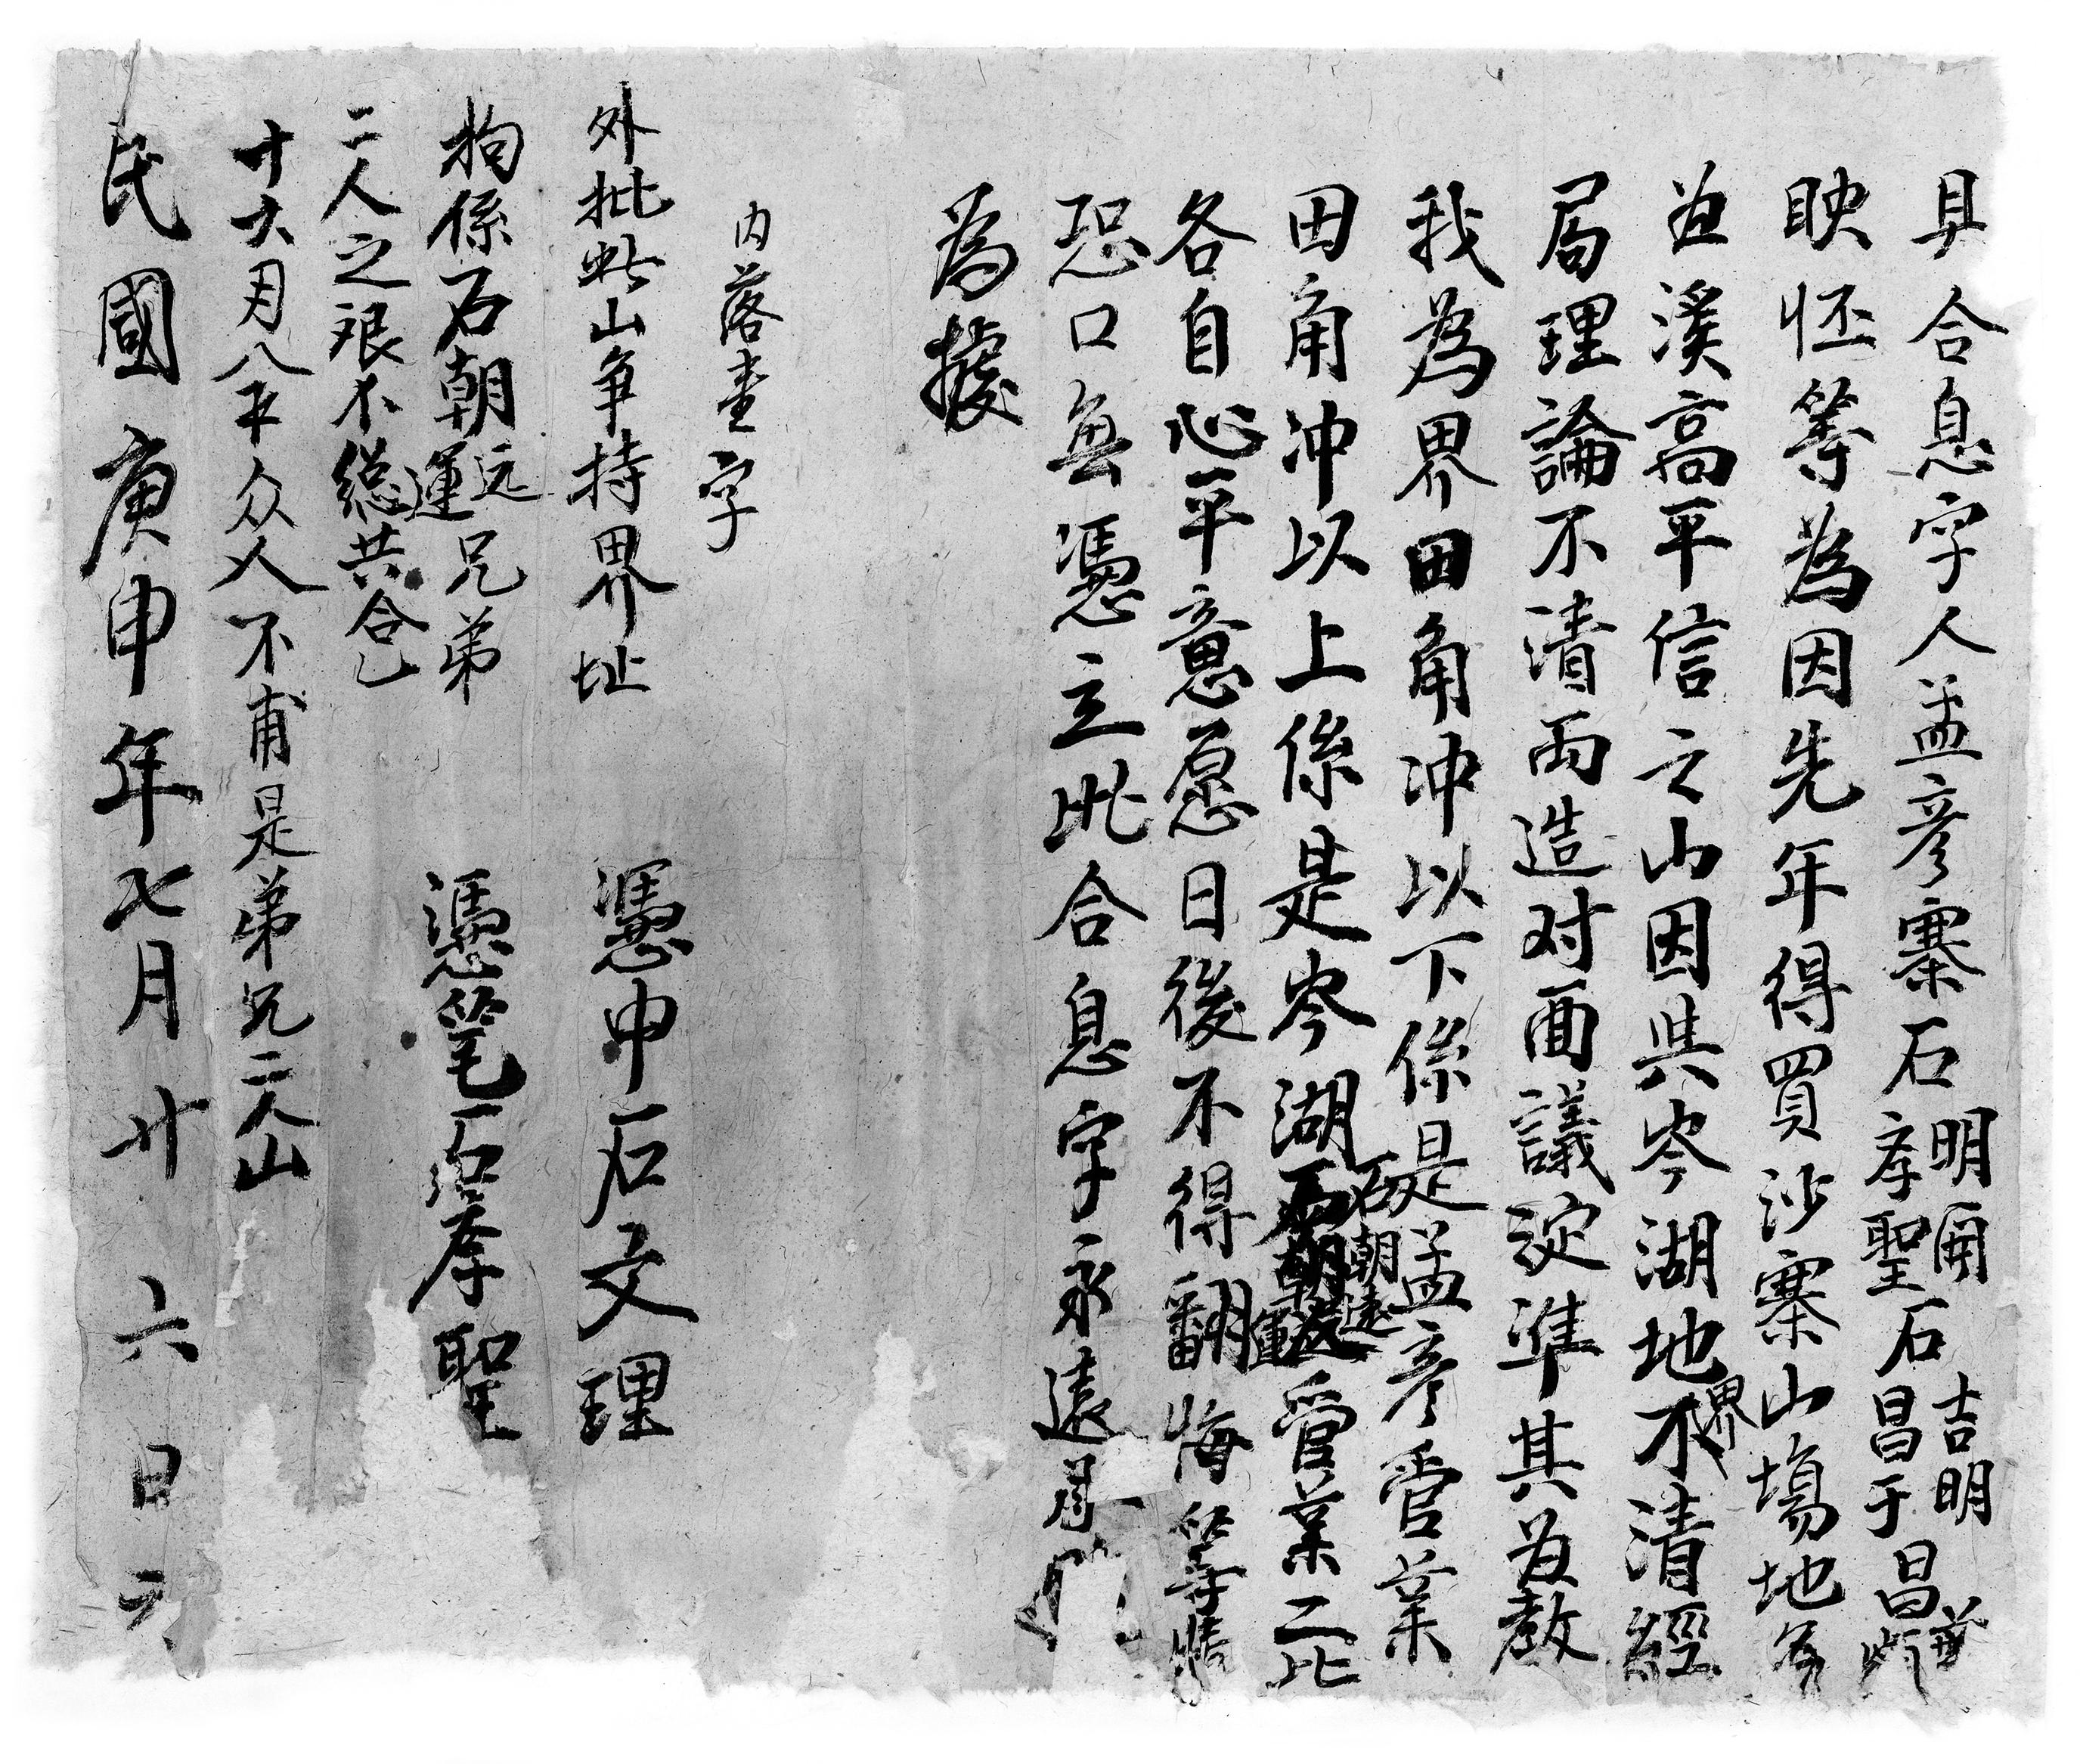 具合息字人孟彦寨石明開孝聖石吉明昌于昌
映怌等為因先年得買沙寨山塲地名
岜溪高平信之山因與岑湖地界不清經
局理論不清両造对面議定準其岜教
我為界田角冲以下係是孟彦管業
田角冲以上係是岑湖石朝遠運管業二比
各自心平意愿日後不得翻悔等情
恐口無憑立此合息字永遠
為據
内落壹字
外批此山争持界址 憑中石文理
拘係石朝远運兄弟 憑笔石孝聖
二人之艰不総共合乚
十六月八年众人不甫是弟兄二人山
民國庚申年七月廿六日立